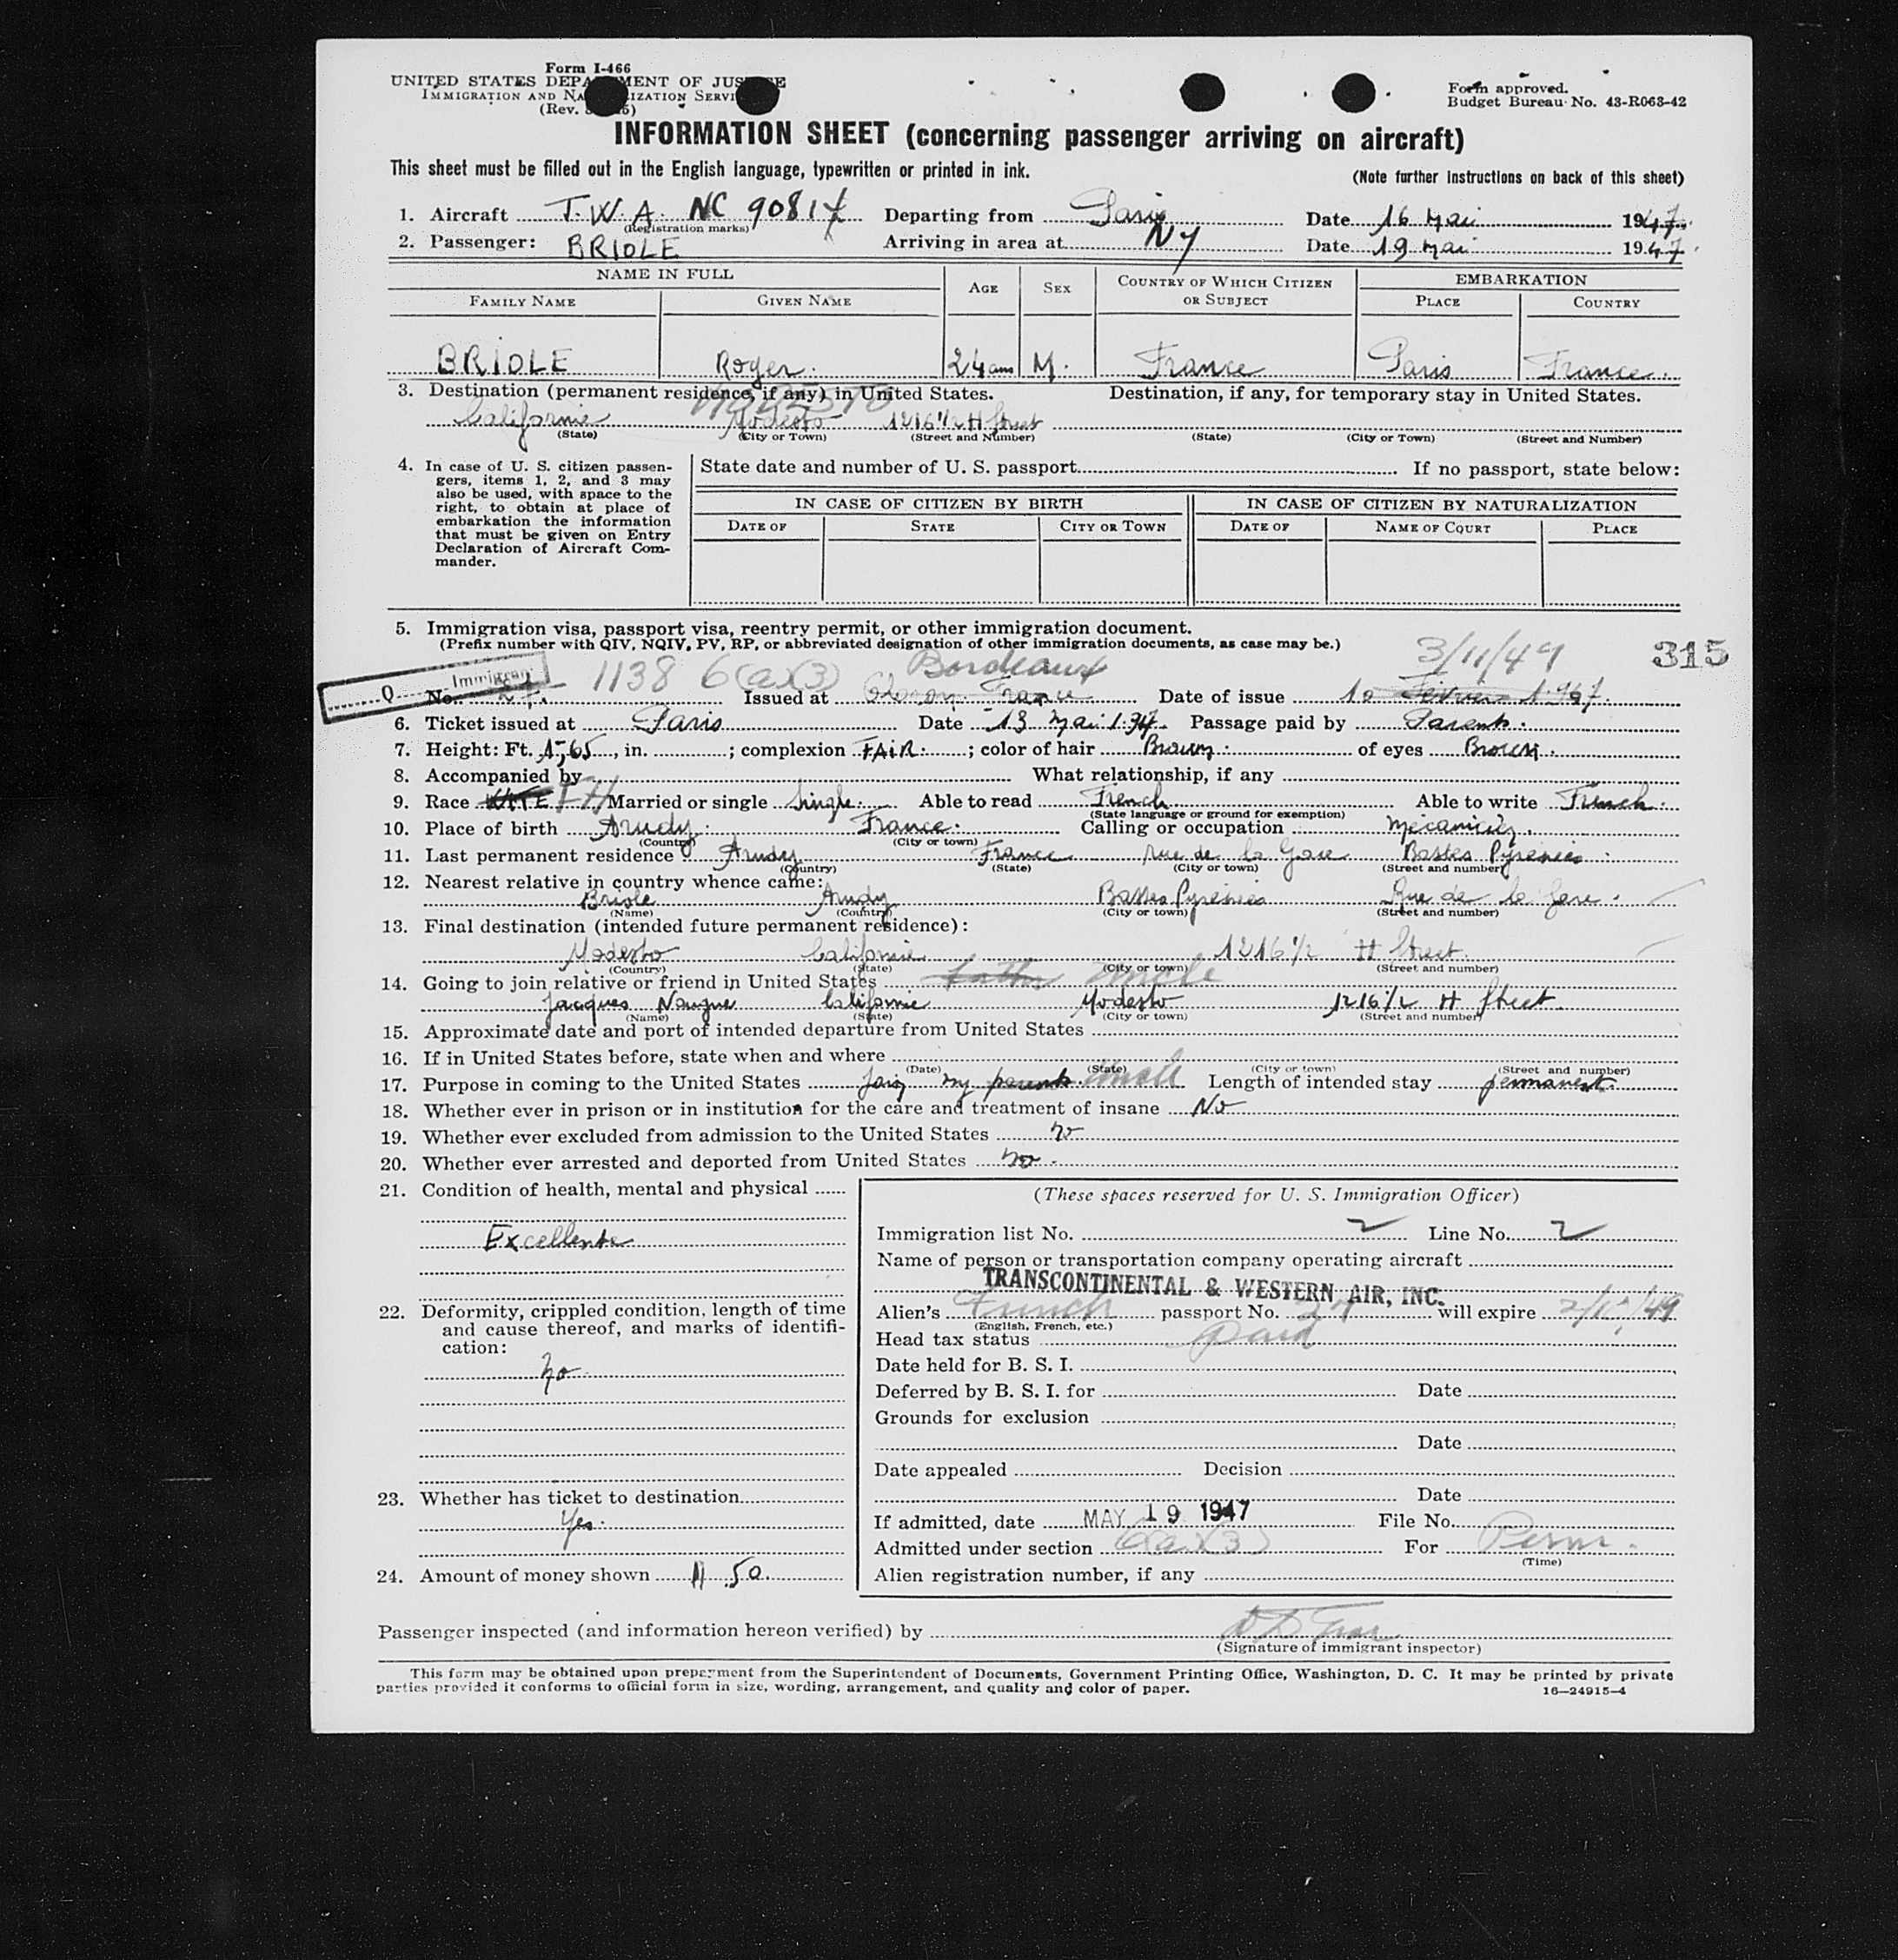 Form I-466
UNITED STATES DEPARTMENT OF JUSTICE
IMMIGRATION AND NATURALIZATION SERVICE
(Rev.
Form approved.
Budget Bureau No. 43-R063-42
INFORMATION SHEET (concerning passenger arriving on aircraft)
This sheet must be filled out in the English language, typewritten or printed in ink. (Note further instructions on back of this sheet)
1. Aircraft T.W.A. NC 90814 Departing from Paris Date 16 Mai 1947
(Registration marks)
2. Passenger: BRIOLE Arriving in area at NY Date 19 Mai 1947
NAME IN FULL AGE SEX COUNTRY OF WHICH CITIZEN OR SUBJECT EMBARKATION
FAMILY NAME GIVEN NAME PLACE COUNTRY
BRIOLE Roger. 24 ans M. France Paris France.
3. Destination (permanent residence, if any) in United States. Destination, if any, for temporary stay in United States.
MODESTO
Californie Modesto 1216 1/2 H Street
(State) (City or Town) (Street and Number) (State) (City or Town) (Street and Number)
4. In case of U. S. citizen passengers, items 1, 2, and 3 may also be used, with space to the right, to obtain at place of embarkation the information that must be given on Entry Declaration of Aircraft Commander.
State date and number of U. S. passport If no passport, state below:
IN CASE OF CITIZEN BY BIRTH IN CASE OF CITIZEN BY NATURALIZATION
DATE OF STATE CITY OR TOWN DATE OF NAME OF COURT PLACE
5. Immigration visa, passport visa, reentry permit, or other immigration document.
(Prefix number with QIV, NQIV, PV, RP, or abbreviated designation of other immigration documents, as case may be.)
3/11/47 315
Q Immigrant 1138 6(a)(3) Bordeaux
No. 27. Issued at Oloron France Date of issue 10 Février 1947.
6. Ticket issued at Paris Date 13 Mai Passage paid by Parents.
7. Height: Ft. 1,65, in. ; complexion FAIR. ; color of hair Brown. of eyes Brown.
8. Accompanied by What relationship, if any
9. Race Married or single Single. Able to read French Able to write French.
(State language or ground for exemption)
10. Place of birth Arudy. France. Calling or occupation Mécanicien.
(Country) (City or town)
11. Last permanent residence Arudy France Rue de la Gare Basses Pyrénées.
(Country) (State) (City or town) (Street and number)
12. Nearest relative in country whence came:
Briole Arudy Basses Pyrénées Rue de la Gare.
(Name) (Country) (City or town) (Street and number)
13. Final destination (intended future permanent residence):
Modesto Californie 1216 1/2 H Street.
(Country) (State) (City or town) (Street and number)
14. Going to join relative or friend in United States father uncle
Jacques Californie Modesto 1216 1/2 H Street.
(Name) (State) (City or town) (Street and number)
15. Approximate date and port of intended departure from United States
16. If in United States before, state when and where
(Date) (State) (City or town) (Street and number)
17. Purpose in coming to the United States Join my parents. uncle Length of intended stay permanent.
18. Whether ever in prison or in institution for the care and treatment of insane No
19. Whether ever excluded from admission to the United States no
20. Whether ever arrested and deported from United States no.
21. Condition of health, mental and physical
Excellente
22. Deformity, crippled condition, length of time and cause thereof, and marks of identification:
no
23. Whether has ticket to destination
Yes.
24. Amount of money shown $ 50.
(These spaces reserved for U. S. Immigration Officer)
Immigration list No. 2 Line No. 2
Name of person or transportation company operating aircraft
TRANSCONTINENTAL & WESTERN AIR, INC.
Alien's French passport No. 27 will expire
(English, French, etc.)
Head tax status Paid
Date held for B. S. I.
Deferred by B. S. I. for Date
Grounds for exclusion
Date
Date appealed Decision
Date
If admitted, date MAY 19 1947 File No.
Admitted under section 6(a)(3) For Perm.
(Time)
Alien registration number, if any
Passenger inspected (and information hereon verified) by
(Signature of immigrant inspector)
This form may be obtained upon prepayment from the Superintendent of Documents, Government Printing Office, Washington, D. C. It may be printed by private
parties provided it conforms to official form in size, wording, arrangement, and quality and color of paper. 16—24915-4